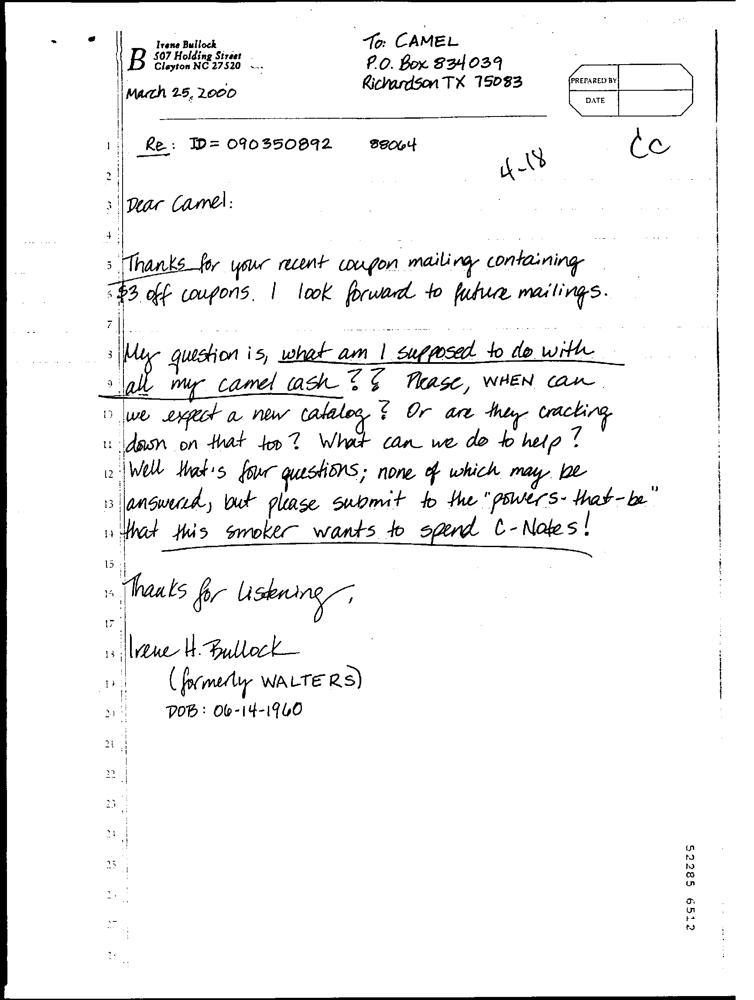 B
Irene Bullock
507 Holding Street
Clayton NC 27520
To: CAMEL
P.O. Box 834039
Richardson TX 75083
March 25, 2000
PREPARED BY
DATE
1 Re: ID = 090350892 88064
4-18
CC
2
3 Dear Camel:
4
5 Thanks for your recent coupon mailing containing
6 $3 off coupons. I look forward to future mailings.
7
8 My question is, what am I supposed to do with
9 all my camel cash?? Please, WHEN can
10 we expect a new catalog? Or are they cracking
11 down on that too? What can we do to help?
12 Well that's four questions; none of which may be
13 answered, but please submit to the "powers-that-be"
14 that this smoker wants to spend C-Notes!
15
16 Thanks for listening,
17
18 Irene H. Bullock
19 (formerly WALTERS)
20 DOB: 06-14-1960
21
22
23
24
25
52285 6512